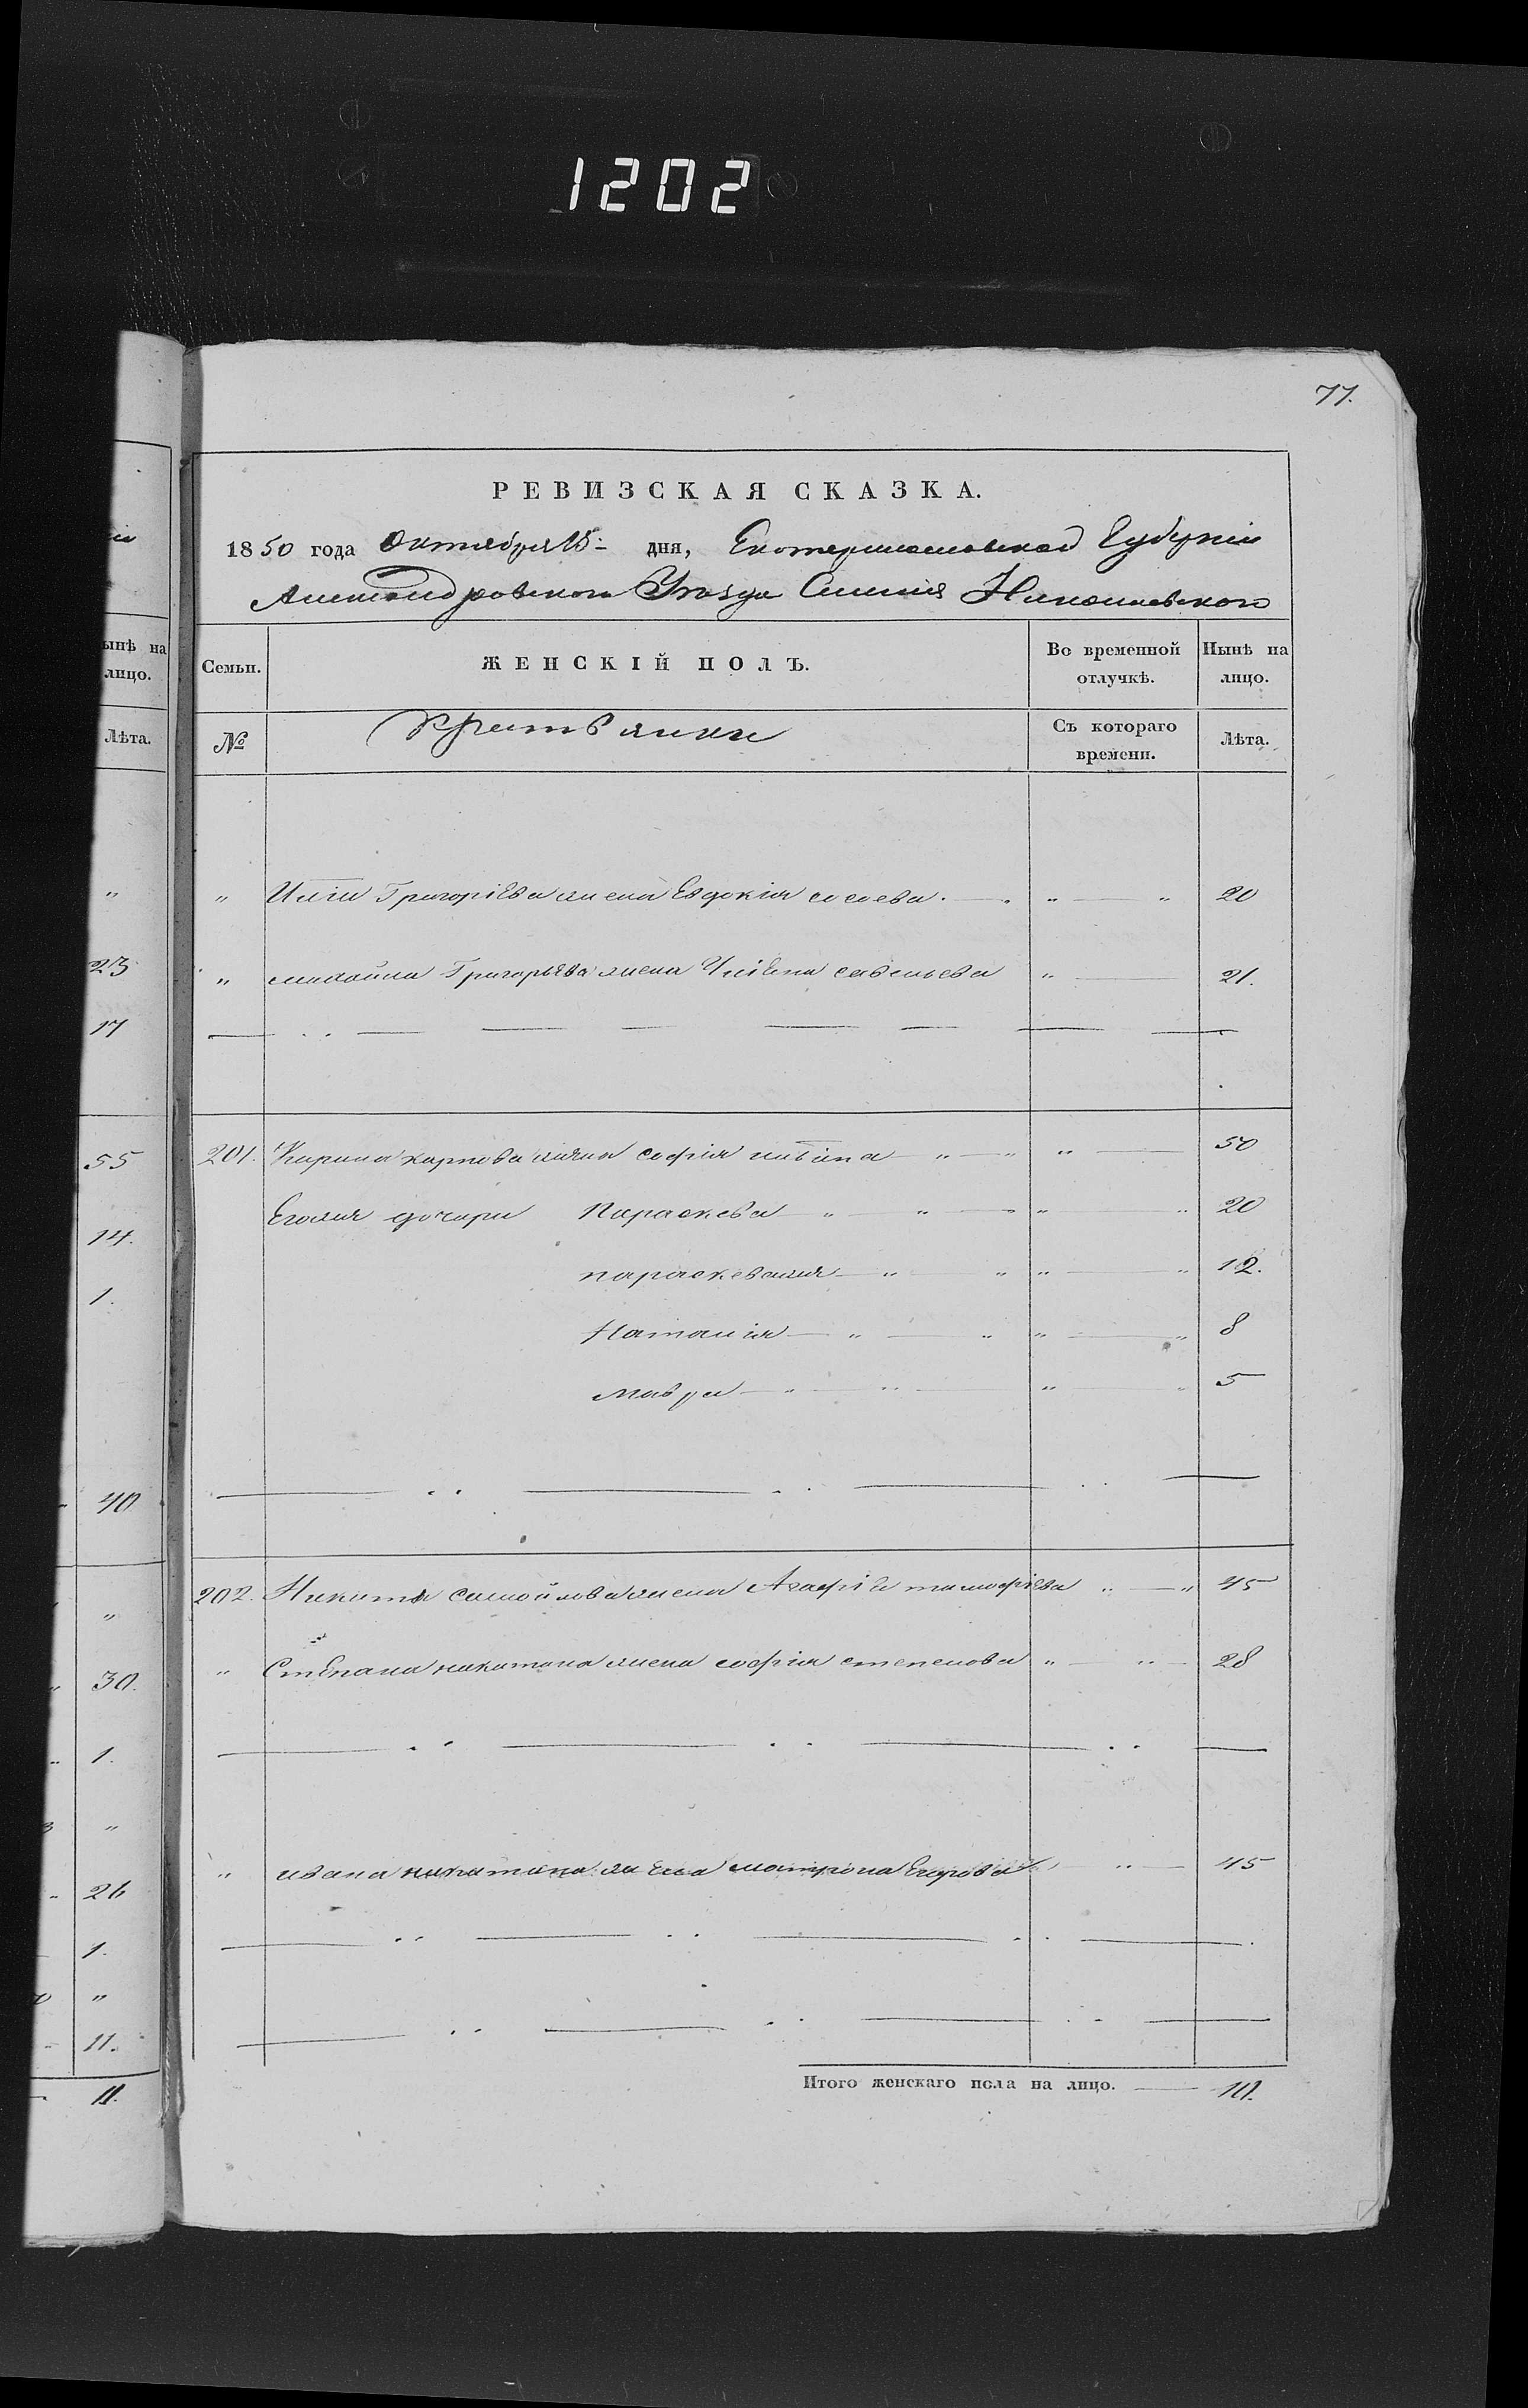 1202
77.
РЕВИЗСКАЯ СКАЗКА.
1850 года Октября 15 дня, Екатеринославской Губерніи
Александровского Уѣзда Николаевского
ынѣ на лицо.
Лѣта.
Семьи.
ЖЕНСКІЙ ПОЛЪ.
Во временной отлучкѣ.
Нынѣ на лицо.
№
Съ котораго времени.
Лѣта.
„ Григоріева жена Евдокія „ „ 20
„ Григорьева жена савельева „ 21.
201. карпова жена софія „ „ „ 50
Его дочери Параскева „ „ „ „ 20
параскева „ „ „ „ 12.
Наталія „ „ „ „ 8
мавра „ „ „ „ 5
202. Никиты самойлова жена Агафія тимофіева „ „ 45
„ Степана никитина жена софія степанова „ „ 28
„ ивана никитина жена матрона Егорова „ 45
Итого женскаго пола на лицо. 10.
„
23
17
55
14.
1.
40
„
30.
1.
„
26
1.
„
11.
11.